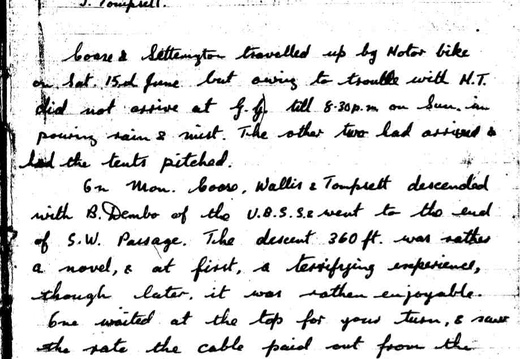 J. Tompsett.
Coase & Settrington travelled up by Motor bike
on Sat. 15th June but owing to trouble with N.T.
did not arrive at G.G. till 8.30p.m on Sun. in
pouring rain & mist. The other two had arrived &
had the tents pitched.
On Mon. Coase, Wallis & Tompsett descended
with B. Dembo of the U.B.S.S. & went to the end
of S.W. Passage. The descent 360 ft. was rather
a novel, & at first, a terrifying experience,
though later, it was rather enjoyable.
One waited at the top for your turn, & saw
the rate the cable paid out from the